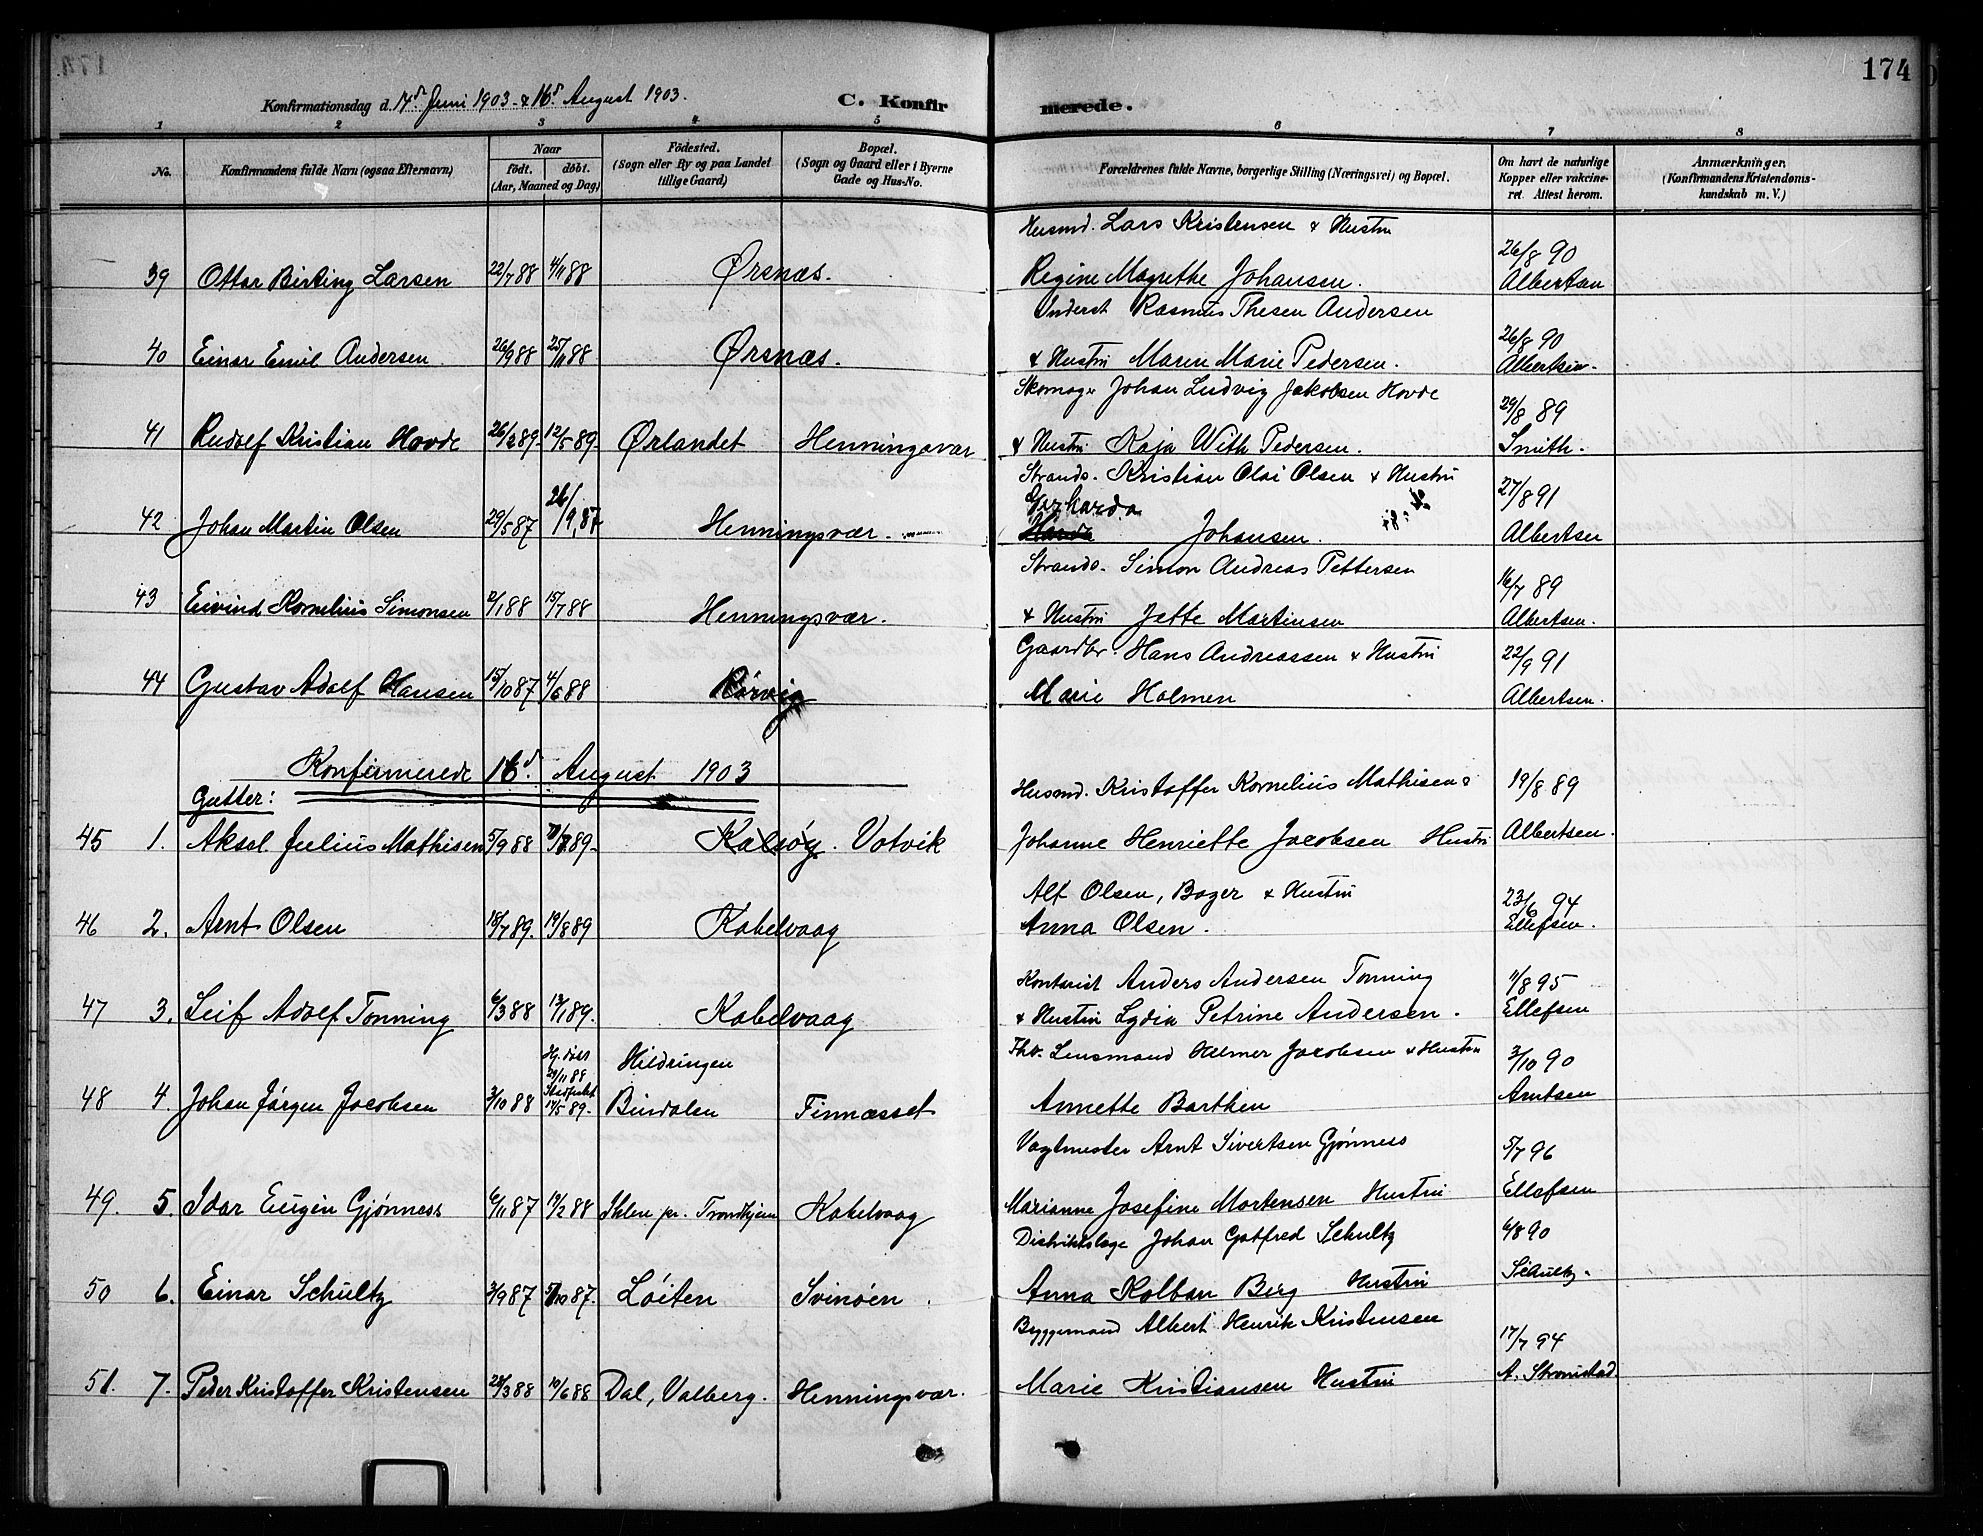 174
Konfirmationsdag d. 14d Juni 1903 & 16d August 1903.
C. Konfirmerede.
1 2 3 4 5 6 7 8
No.
Konfirmandens fulde Navn (ogsaa Efternavn)
Naar
født. døbt.
(Aar, Maaned og Dag)
Fødested.
(Sogn eller By og paa Landet
tillige Gaard)
Bopæl.
(Sogn og Gaard eller i Byerne
Gade og Hus-No.
Forældrenes fulde Navne, borgerlige Stilling (Næringsvei) og Bopæl.
Om havt de naturlige
Kopper eller vakcine-
ret. Attest herom.
Anmærkninger.
(Konfirmandens Kristendoms-
kundskab m. V.)
Husmd. Lars Kristensen & Hustru
39 Ottar Birting Larsen 22/7 88 4/11 88 Ørsnæs. Regine Magrethe Johansen. 26/8 90 Albertsen
Inderst Rasmus Thesen Andersen
40 Einar Emil Andersen 26/9 88 25/11 88 Ørsnæs. & Hustru Maren Marie Pedersen. 26/8 90 Albertsen.
Skomager Johan Ludvig Jakobsen Hovde
41 Rudolf Kristian Hovde 26/2 89. 12/5 89. Ørlandet Henningsvær & Hustru Kaja With Pedersen. 29/8 89 Smith.
Strands. Kristian Olai Olsen & Hustru
Gerharda
42 Johan Martin Olsen 29/5 87 26/9, 87 Henningsvær. Johansen. 27/8 91 Albertsen
Strands. Simon Andreas Pettersen
43 Eivind Kornelius Simonsen 2/1 88 15/7 88 Henningsvær. & Hustru Jette Martinsen 16/7 89 Albertsen.
Gaardbr. Hans Andreassen & Hustru
44 Gustav Adolf Hansen 15/10 87 4/6 88 Rørvig Marie Holmen 22/9 91 Albertsen.
Konfirmerede 16d. August 1903
Gutter:
Husmd. Kristoffer Kornelius Mathisen &
45 1. Aksel Julius Mathisen 5/9 88 89. Kalsøy. Votvik Johanne Henriette Jacobsen Hustru 19/8 89 Albertsen.
Alf Olsen, Bager & Hustru
46 2. Arnt Olsen 15/7 89. 19/8 89 Kabelvaag Anna Olsen. 23/6 94 Ellefsen.
Kontorist Anders Andersen Tonning
47 3. Leif Adolf Tonning 6/3 88 13/1 89. Kabelvaag & Hustru Lydia Petrine Andersen. 11/8 95 Ellefsen
Hj. døbt 29/11 88 Hildringen Lensmand Helmer Jacobsen & Hustru
48 4. Johan Jørgen Jacobsen 3/10 88 Stadfæstet 12/5 89. Bindalen Finnæsset Annette Barthen 3/10 90 Arntsen
Vagtmester Arnt Sivertsen Gjønness
49. 5. Idar Eugen Gjønness 6/11 87 19/2 88 Ihlen pr. Trondhjem Kabelvaag Marianne Josefine Mortensen Hustru 5/7 96 Ellefsen
Distriktslæge Johan Gotfred Schultz
50 6. Einar Schultz 3/9 87 /10 87. Løiten Svinøen. Anna Kolban Berg Hustru 6/8 90 Schultz.
Byggemand Albert Henrik Kristensen
51. 7. Peder Kristoffer Kristensen 28/3 88 10/6 88 Dal, Valberg. Henningsvær. Marie Kristiansen Hustru 17/7 94 A. Strømstad.